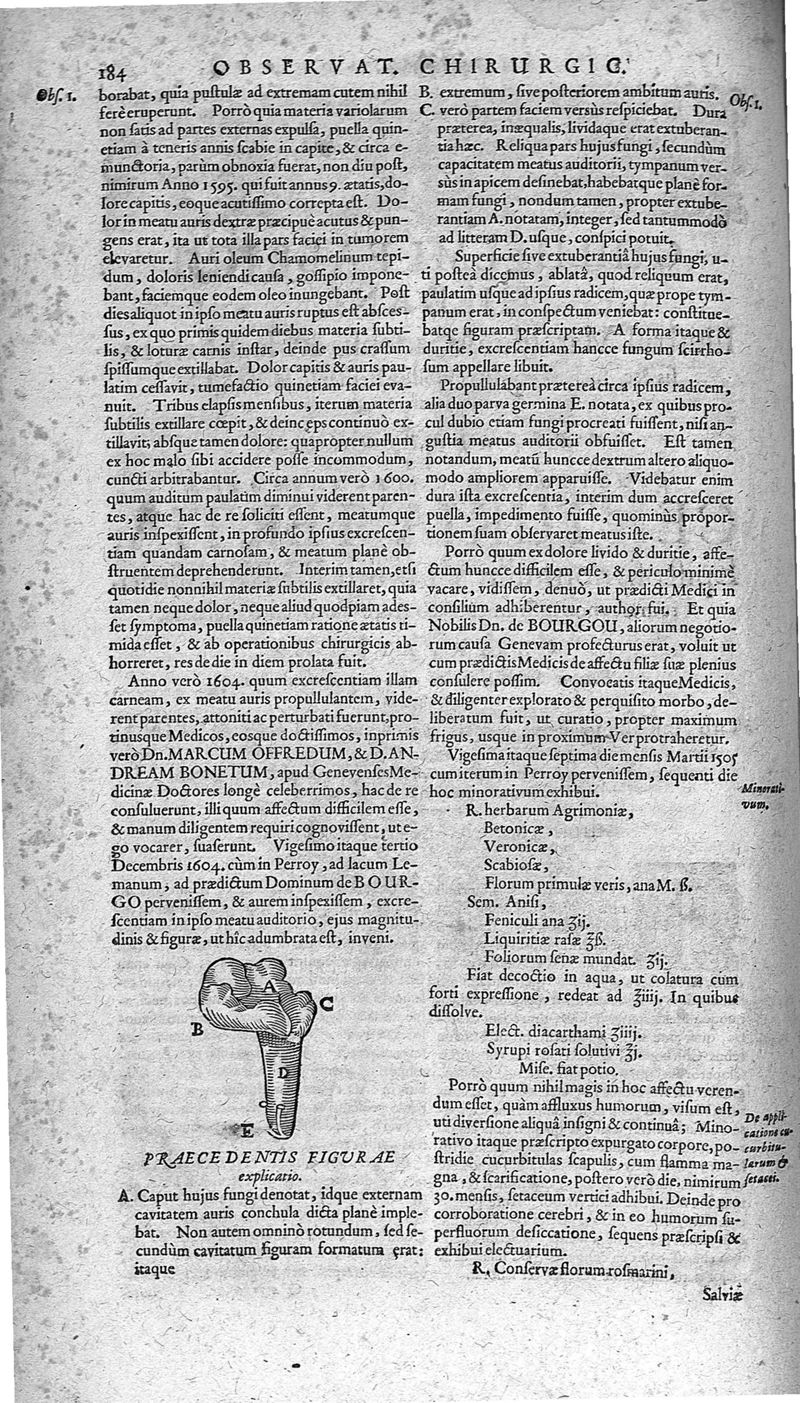 184
OBSERVAT. CHIRURGIC.
Obſ. 1.
borabat, quia puſtulæ ad extremam cutem nihil
ferè eruperunt. Porrò quia materia variolarum
non ſatis ad partes externas expulſa, puella quin-
etiam à teneris annis ſcabie in capite, & circa e-
munctoria, parùm obnoxia fuerat, non diu poſt,
nimirum Anno 1595. qui fuit annus 9. ætatis, do-
lore capitis, eoque acutiſſimo correpta eſt. Do-
lor in meatu auris dextræ præcipuè acutus & pun-
gens erat, ita ut tota illa pars faciei in tumorem
elevaretur. Auri oleum Chamomelinum tepi-
dum, doloris leniendi cauſa, goſſipio impone-
bant, faciemque eodem oleo inungebant. Poſt
dies aliquot in ipſo meatu auris ruptus eſt abſceſ-
ſus, ex quo primis quidem diebus materia ſubti-
lis, & loturæ carnis inſtar, deinde pus craſſum
ſpiſſumque extillabat. Dolor capitis & auris pau-
latim ceſſavit, tumefactio quinetiam faciei eva-
nuit. Tribus elapſis menſibus, iterum materia
ſubtilis extillare cœpit, & deinceps continuò ex-
tillavit; abſque tamen dolore: quapropter nullum
ex hoc malo ſibi accidere poſſe incommodum,
cuncti arbitrabantur. Circa annum verò 1600.
quum auditum paulatim diminui viderent paren-
tes, atque hac de re ſoliciti eſſent, meatumque
auris inſpexiſſent, in profundo ipſius excreſcen-
tiam quandam carnoſam, & meatum planè ob-
ſtruentem deprehenderunt. Interim tamen, etſi
quotidie nonnihil materiæ ſubtilis extillaret, quia
tamen neque dolor, neque aliud quodpiam adeſ-
ſet ſymptoma, puella quinetiam ratione ætatis ti-
mida eſſet, & ab operationibus chirurgicis ab-
horreret, res de die in diem prolata fuit.
Anno verò 1604. quum excreſcentiam illam
carneam, ex meatu auris propullulantem, vide-
rent parentes, attoniti ac perturbati fuerunt, pro-
tinusque Medicos, eosque doctiſſimos, inprimis
verò Dn. MARCUM OFFREDUM, & D. AN-
DREAM BONETUM, apud Genevenſes Me-
dicinæ Doctores longè celeberrimos, hac de re
conſuluerunt, illi quum affectum difficilem eſſe,
& manum diligentem requiri cognoviſſent, ut e-
go vocarer, ſuaſerunt. Vigeſimo itaque tertio
Decembris 1604. cùm in Perroy, ad lacum Le-
manum, ad prædictum Dominum de BOUR-
GO perveniſſem, & aurem inſpexiſſem, excre-
ſcentiam in ipſo meatu auditorio, ejus magnitu-
dinis & figuræ, ut hîc adumbrata eſt, inveni.
A
B
C
D
E
PRÆCEDENTIS FIGURAE
explicatio.
A. Caput hujus fungi denotat, idque externam
cavitatem auris conchula dicta planè imple-
bat. Non autem omninò rotundum, ſed ſe-
cundùm cavitatum figuram formatum erat:
itaque
B. extremum, ſive poſteriorem ambitum auris.
Obſ. 1.
C. verò partem faciem versùs reſpiciebat. Dura
præterea, inæqualis, lividaque erat extuberan-
tia hæc. Reliqua pars hujus fungi, ſecundùm
capacitatem meatus auditorii, tympanum ver-
sùs in apicem deſinebat, habebatque planè for-
mam fungi, nondum tamen, propter extube-
rantiam A. notatam, integer, ſed tantummodò
ad litteram D. uſque, conſpici potuit.
Superficie ſive extuberantiâ hujus fungi, u-
ti poſtea dicemus, ablatâ, quod reliquum erat,
paulatim uſque ad ipſius radicem, quæ prope tym-
panum erat, in conſpectum veniebat: conſtitue-
batqe figuram præſcriptam. A forma itaque &
duritie, excreſcentiam hancce fungum ſcirrho-
ſum appellare libuit.
Propullulabant prætereà circa ipſius radicem,
alia duo parva germina E. notata, ex quibus pro-
cul dubio etiam fungi procreati fuiſſent, niſi an-
guſtia meatus auditorii obfuiſſet. Eſt tamen
notandum, meatū huncce dextrum altero aliquo-
modo ampliorem apparuiſſe. Videbatur enim
dura iſta excreſcentia, interim dum accreſceret
puella, impedimento fuiſſe, quominùs propor-
tionem ſuam obſervaret meatus iſte.
Porrò quum ex dolore livido & duritie, affe-
ctum huncce difficilem eſſe, & periculo minimè
vacare, vidiſſem, denuò, ut prædicti Medici in
conſilium adhiberentur, author fui. Et quia
Nobilis Dn. de BOURGOU, aliorum negotio-
rum cauſa Genevam profecturus erat, voluit ut
cum prædictis Medicis de affectu filiæ ſuæ plenius
conſulere poſſim. Convocatis itaque Medicis,
& diligenter explorato & perquiſito morbo, de-
liberatum fuit, ut curatio, propter maximum
frigus, usque in proximum Ver protraheretur.
Vigeſima itaque ſeptima die menſis Martii 1505
cum iterum in Perroy perveniſſem, ſequenti die
hoc minorativum exhibui.
Minorati-
vum.
R. herbarum Agrimoniæ,
Betonicæ,
Veronicæ,
Scabioſæ,
Florum primulæ veris, ana M. ß.
Sem. Aniſi,
Feniculi ana ʒij.
Liquiritiæ raſæ ℥ß.
Foliorum ſenæ mundat. ʒij.
Fiat decoctio in aqua, ut colatura cum
forti expreſſione, redeat ad ℥iiij. In quibus
diſſolve.
Elect. diacarthami ʒiiij.
Syrupi roſati ſolutivi ℥j.
Miſe. fiat potio.
Porrò quum nihil magis in hoc affectu veren-
dum eſſet, quàm affluxus humorum, viſum eſt,
uti diverſione aliquâ inſigni & continuâ; Mino-
rativo itaque præſcripto expurgato corpore, po-
ſtridie cucurbitulas ſcapulis, cum flamma ma-
gna, & ſcarificatione, poſtero verò die, nimirum
30. menſis, ſetaceum vertici adhibui. Deinde pro
corroboratione cerebri, & in eo humorum ſu-
perfluorum deſiccatione, ſequens præſcripſi &
exhibui electuarium.
De appli-
catione cu-
curbitu-
larum &
ſetacei.
R. Conſervæ florum roſmarini,
Salviæ